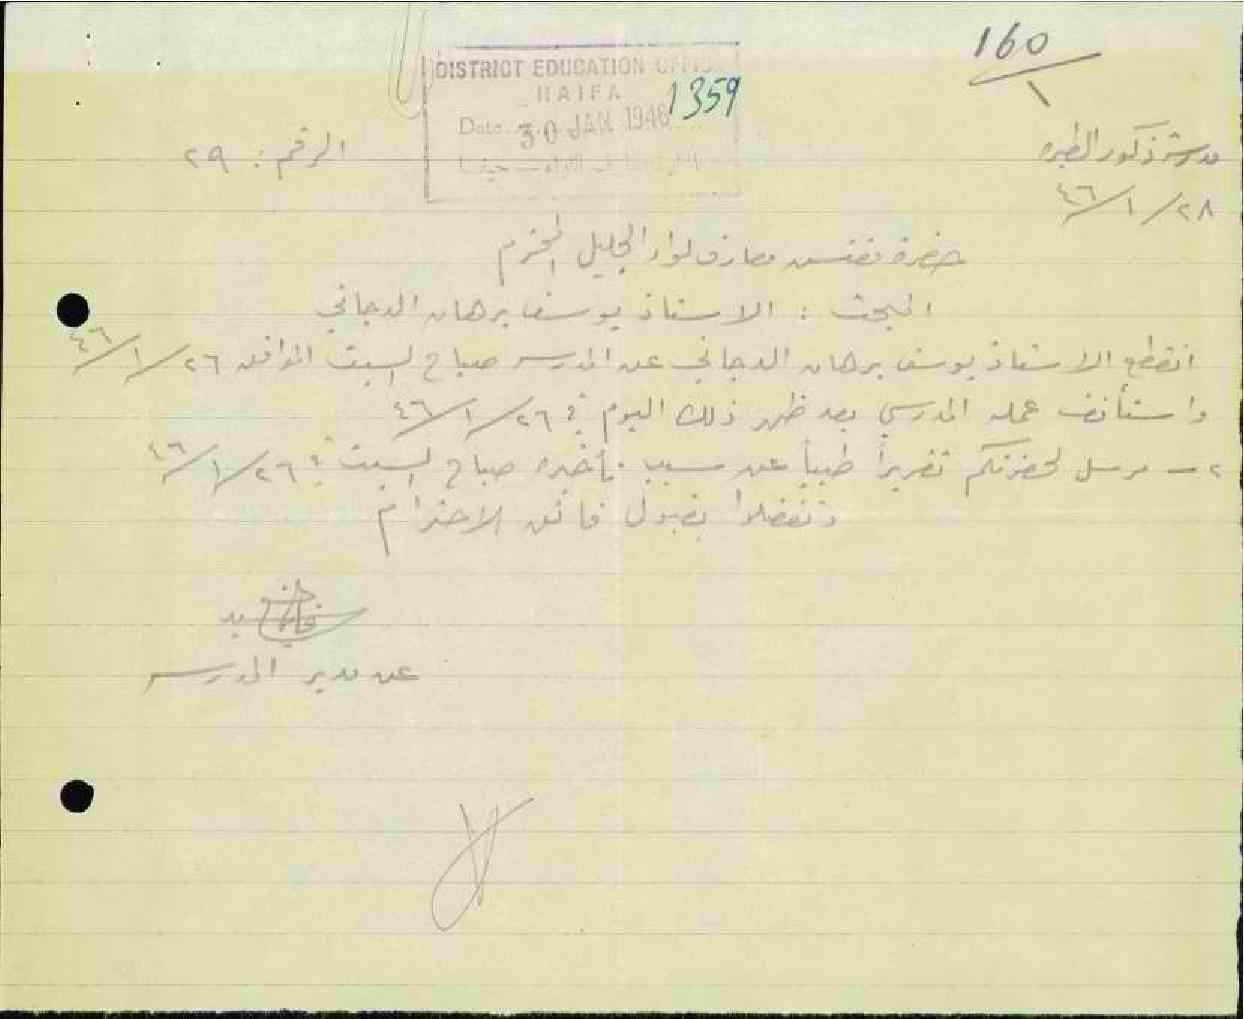 160
١
DISTRICT EDUCATION OFFICE
HAIFA
1359
Date 30 JAN 1946
مدرسة ذكور الطيره
الرقم : ٢٩
٢٨/١/٤٦
حضرة مفتش معارف لواء الجليل المحترم
المبحث : الاستاذ يوسف برهان الدجاني
انقطع الاستاذ يوسف برهان الدجاني عن المدرسه صباح السبت الموافق ٢٦/١/٤٦
واستأنف عمله المدرسي بعد ظهر ذلك اليوم في ٢٦/١/٤٦
٢ – مرسل لحضرتكم تقريراً طبياً عن سبب تأخيره صباح السبت في ٢٦/١/٤٦
وتفضلوا بقبول فائق الاحترام
عن مدير المدرسه